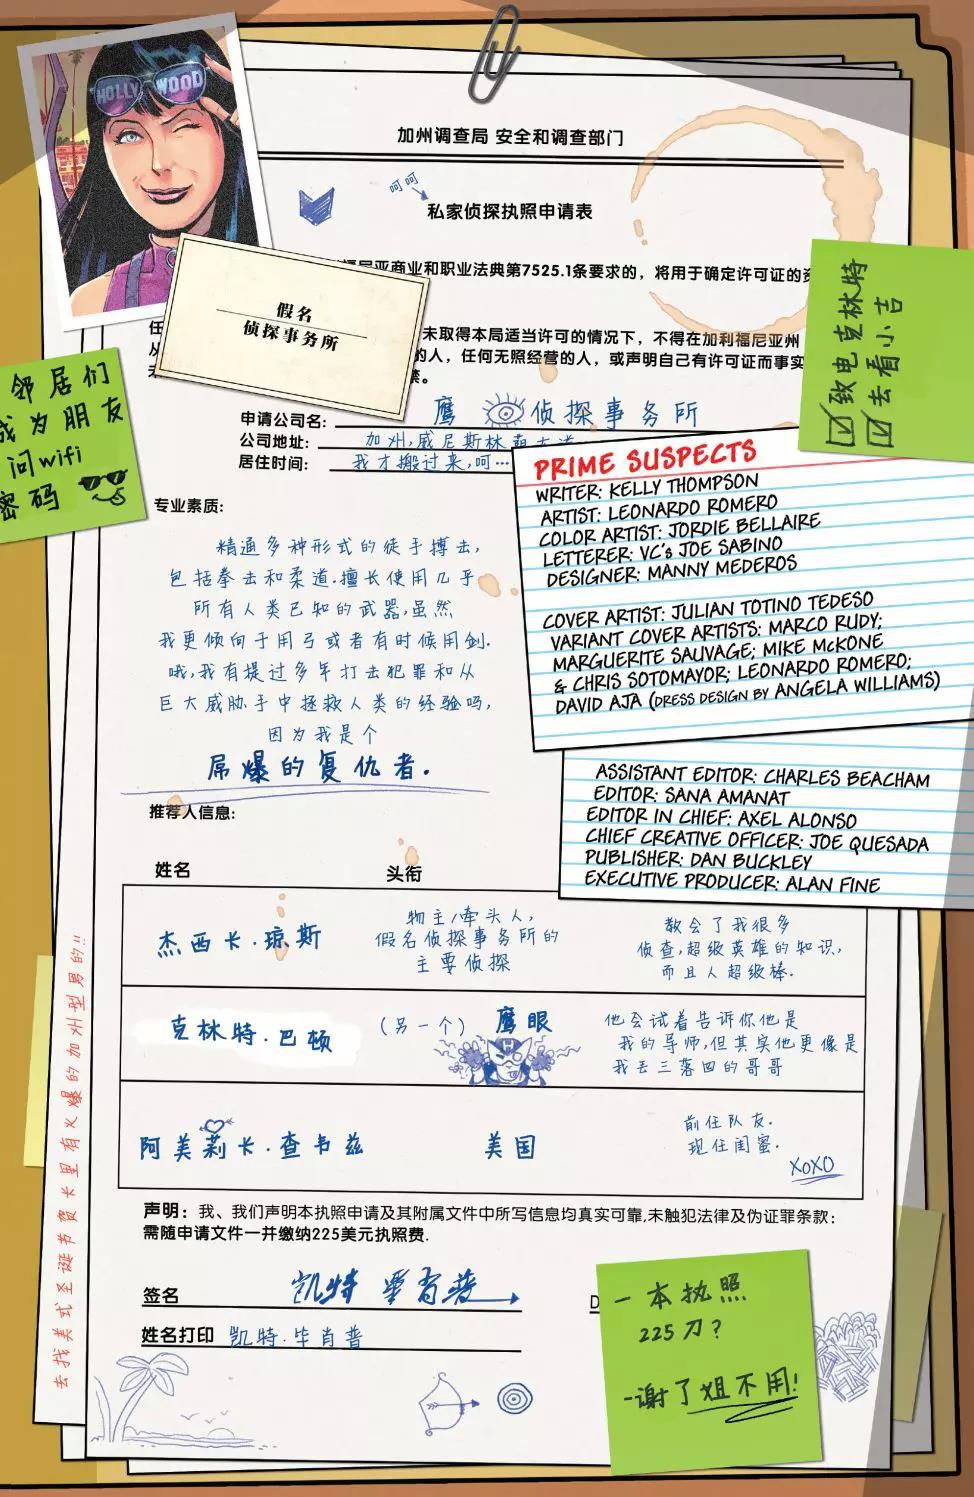 HOLLYWOOD
加州调查局 安全和调查部门
呵呵
私家侦探执照申请表
亚商业和职业法典第7525.1条要求的，将用于确定许可证的资
未取得本局适当许可的情况下，不得在加利福尼亚州
的人，任何无照经营的人，或声明自己有许可证而事实
假名
侦探事务所
致电克林特
去看小吉
邻居们
成为朋友
问wifi
密码
申请公司名: 鹰 侦探事务所
公司地址: 加州,威尼斯林荫大道
居住时间: 我才搬过来,呵…
专业素质:
精通多种形式的徒手搏击,
包括拳击和柔道.擅长使用几乎
所有人类已知的武器,虽然
我更倾向于用弓或者有时候用剑.
哦,我有提过多年打击犯罪和从
巨大威胁手中拯救人类的经验吗,
因为我是个
屌爆的复仇者.
PRIME SUSPECTS
WRITER: KELLY THOMPSON
ARTIST: LEONARDO ROMERO
COLOR ARTIST: JORDIE BELLAIRE
LETTERER: VC's JOE SABINO
DESIGNER: MANNY MEDEROS
COVER ARTIST: JULIAN TOTINO TEDESCO
VARIANT COVER ARTISTS: MARCO RUDY;
MARGUERITE SAUVAGE; MIKE McKONE
& CHRIS SOTOMAYOR; LEONARDO ROMERO;
DAVID AJA (DRESS DESIGN BY ANGELA WILLIAMS)
ASSISTANT EDITOR: CHARLES BEACHAM
EDITOR: SANA AMANAT
EDITOR IN CHIEF: AXEL ALONSO
CHIEF CREATIVE OFFICER: JOE QUESADA
PUBLISHER: DAN BUCKLEY
EXECUTIVE PRODUCER: ALAN FINE
推荐人信息:
姓名 头衔
杰西卡·琼斯
物主/牵头人,
假名侦探事务所的
主要侦探
教会了我很多
侦查,超级英雄的知识,
而且人超级棒.
克林特·巴顿
(另一个) 鹰眼
H
他会试着告诉你他是
我的导师,但其实他更像是
我丢三落四的哥哥
阿美莉卡·查韦兹
美国
前任队友.
现任闺蜜.
XOXO
声明：我、我们声明本执照申请及其附属文件中所写信息均真实可靠,未触犯法律及伪证罪条款:
需随申请文件一并缴纳225美元执照费.
签名 凯特 毕肖普
姓名打印 凯特·毕肖普
一本执照
225刀?
-谢了姐不用!
去找美式圣诞节贺卡里有火爆的加州型男的!!